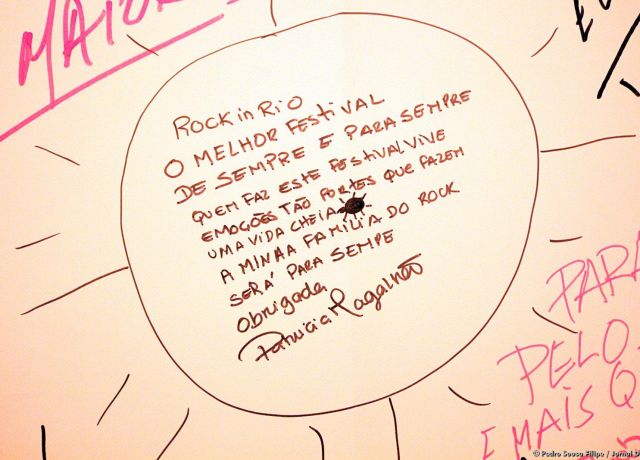 MAIOR
ROCK in RiO
O MELHOR FESTiVAL
DE SEMPRE E PARA SEMPRE
QUEM FAZ ESTE FESTIVAL VIVE
EMOÇÕES TÃO FORTES QUE FAZEM
UMA VIDA CHEIA
A MINHA FAMÍLIA DO ROCK
SERÁ PARA SEMPRE
Obrigada
Patrícia Magalhão
PARA
PELO
MAIS Q
© Pedro Sousa Filipe / Jornal D